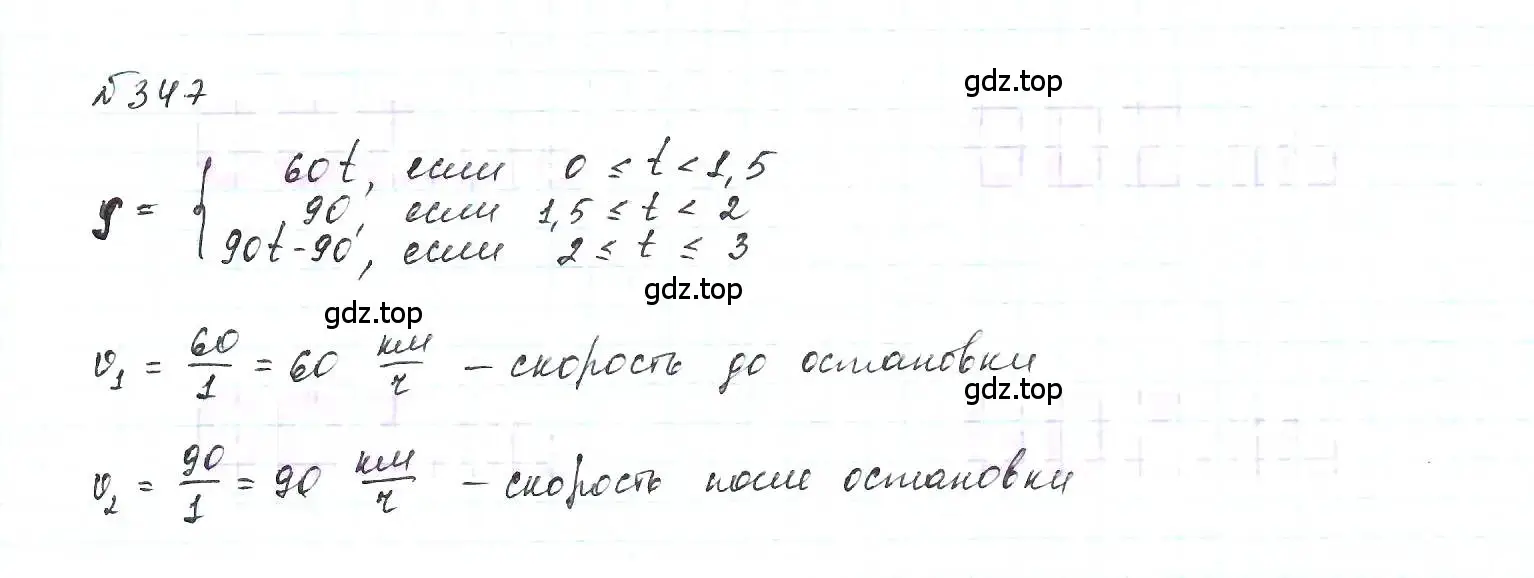 №347
gdz.top
y = { 60t, если 0 ≤ t < 1,5
90, если 1,5 ≤ t < 2
90t-90, если 2 ≤ t ≤ 3
gdz.top
gdz.top
v₁ = 60/1 = 60 км/ч – скорость до остановки
gdz.top
v₂ = 90/1 = 90 км/ч – скорость после остановки